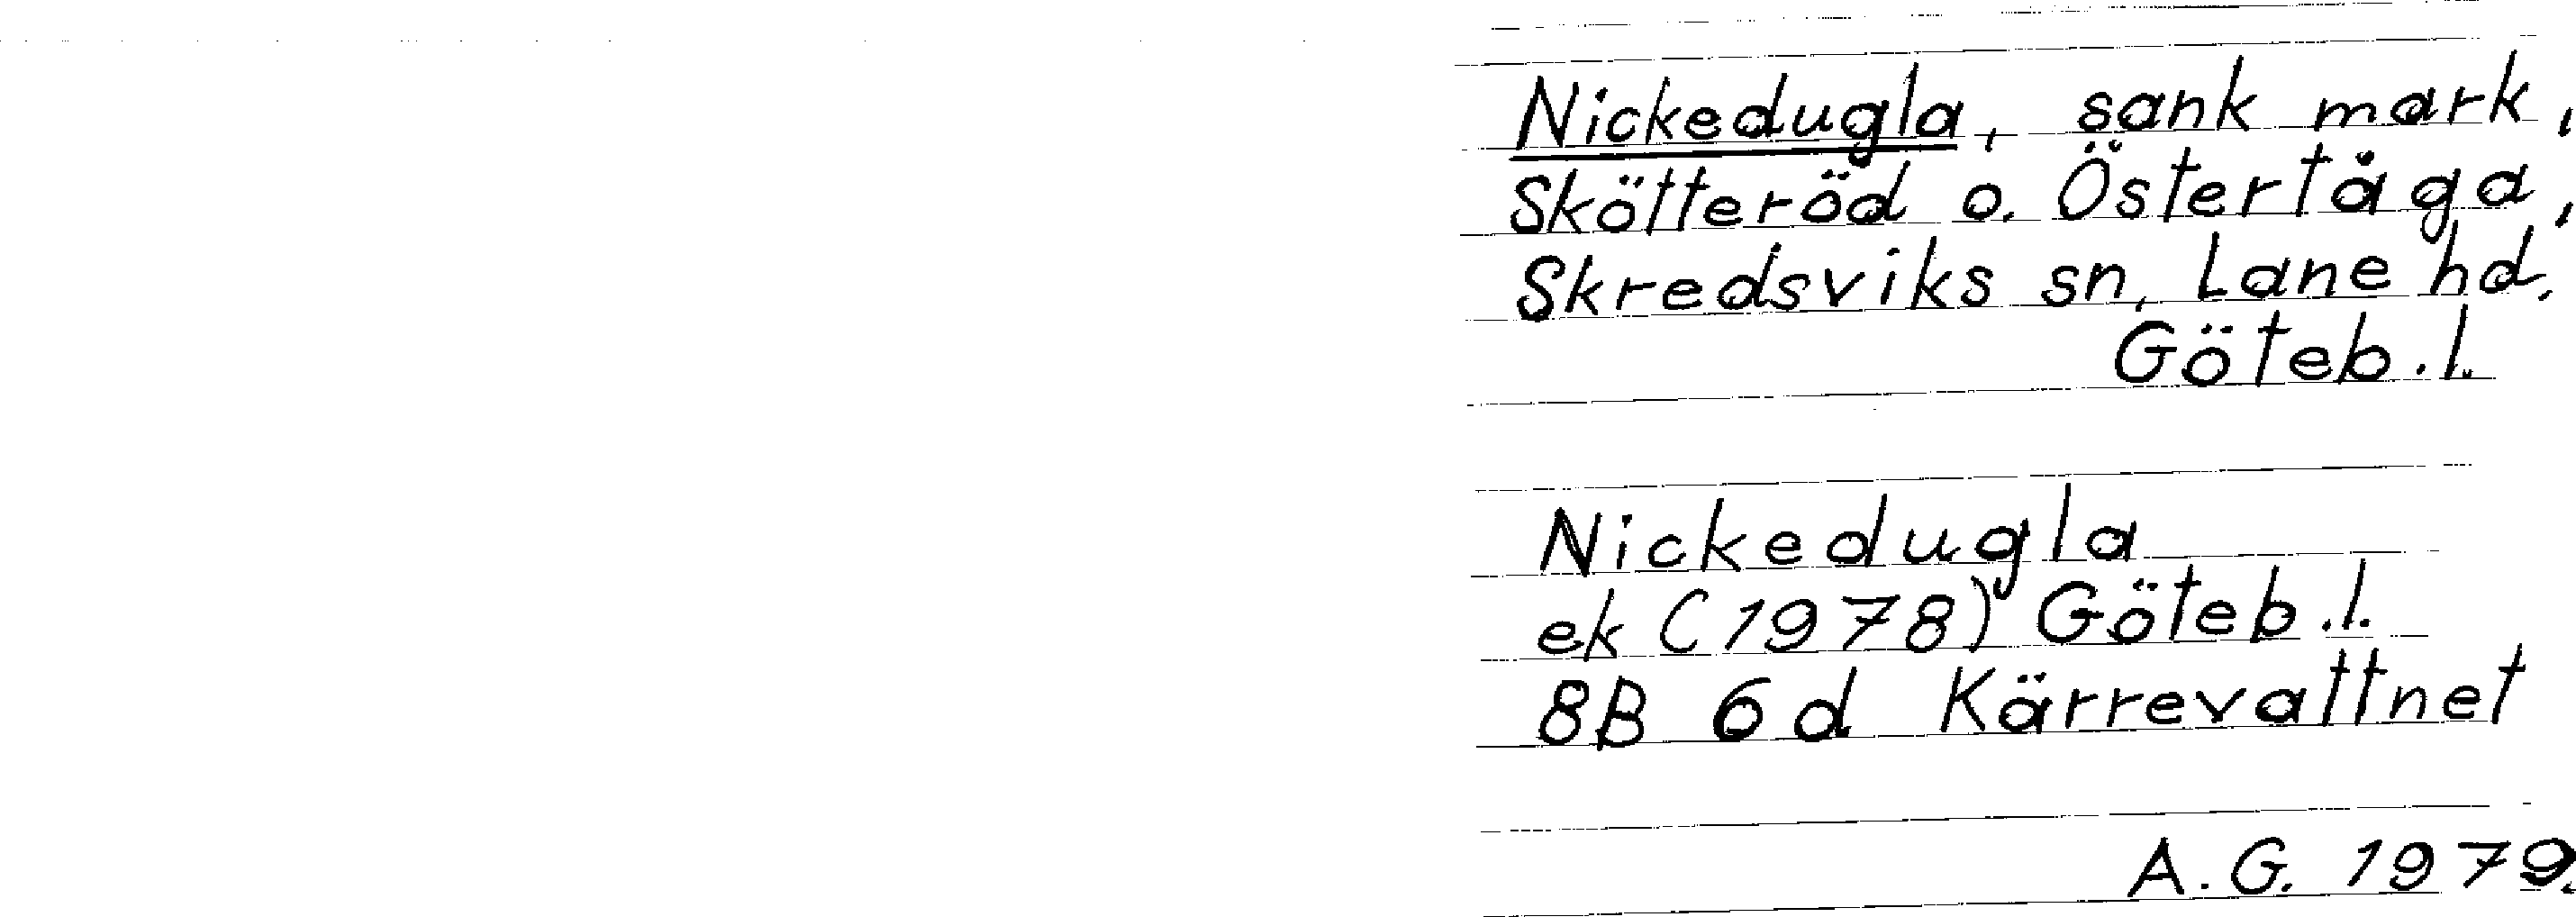 Nickedugla, sank mark,
Skötteröd o. Östertåga,
Skredsviks sn, Lane hd.
Göteb.l.
Nickedugla
ek (1978) Göteb.l.
8B 6d Kärrevattnet
A.G. 1979.